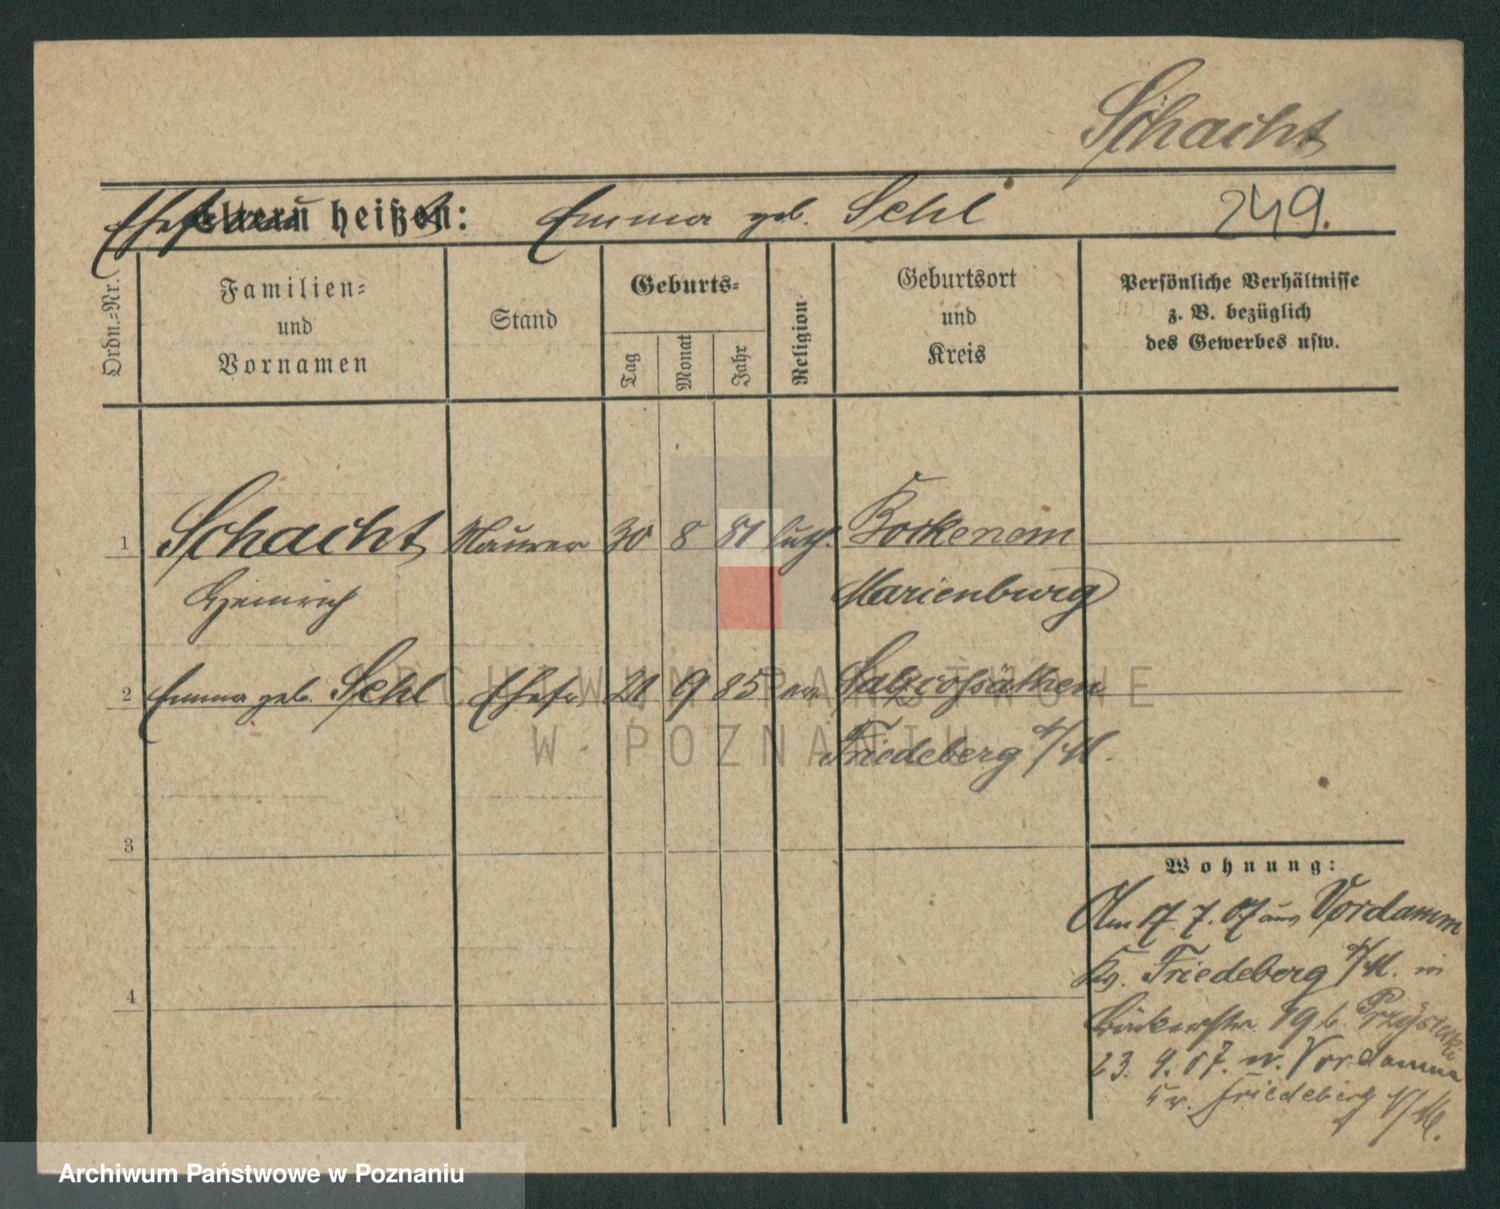 Schacht
Ehefrau
Eltern heißen: Emma geb. Sehl 249.
Ordn.-Nr.
Familien-
und
Vornamen
Stand
Geburts-
Tag
Monat
Jahr
Religion
Geburtsort
und
Kreis
Persönliche Verhältnisse
z. B. bezüglich
des Gewerbes usw.
1 Schacht Maurer 30 8 81 luth. Bockenem
Heinrich Marienburg
2 Emma geb. Sehl Ehefr. 21 9 85 ev
Friedeberg N/M.
3
4
Wohnung:
Am 17. 7. 07 aus Vordamm
Kr. Friedeberg N/M. in
Bäckerstr. 19 b. Przystacki
23. 9. 07. n. Vordamm
Kr. Friedeberg N/M.
ARCHIWUM PAŃSTWOWE
W POZNANIU
Archiwum Państwowe w Poznaniu